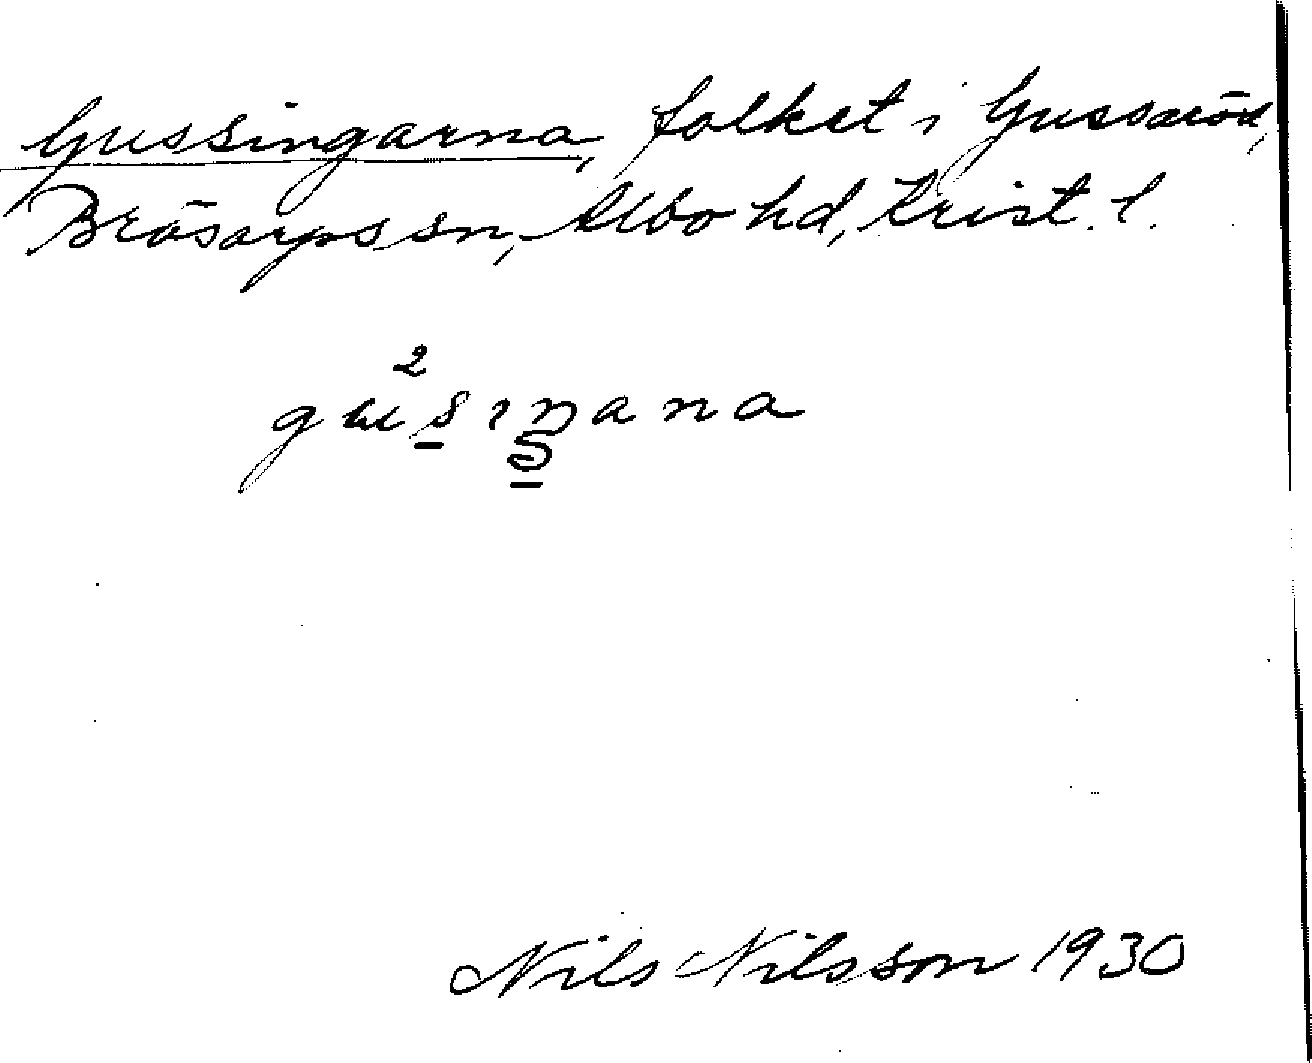 Gussingarna, folket i Gussaröd,
Brösarps sn, Albo hd, Krist. l.
Nils Nilsson 1930